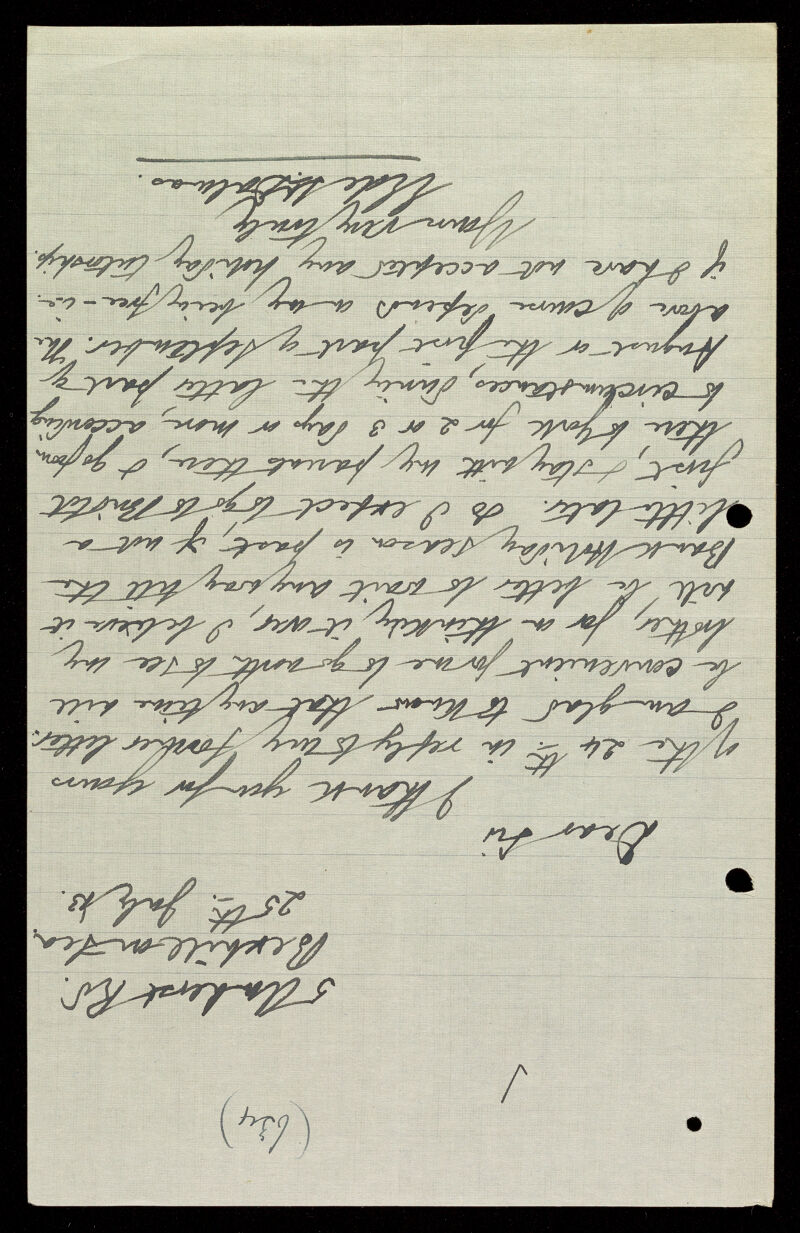 (634)
5 Amherst Rd.
Bexhill on Sea.
25th. July 23.
Dear Sir
I thank you for yours
of the 24th. in reply to my further letter.
I am glad to know that any time will
be convenient for me to go north to see my
brother, for on thinking it over, I believe it
will be better to wait anyway till the
Bank Holiday season is past, if not a
little later. So I expect to go to Bristol
first, & stay with my parents there, & go from
there to York for 2 or 3 days or more, according
to circumstances, during the latter part of
August or the first part of September. The
above of course depends on my being free - i.e.
if I have not accepted any holiday tutorship.
Yours very truly